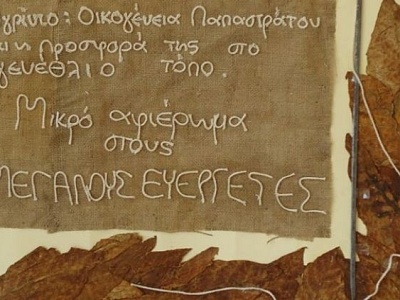 γρίνιο: Οικογένεια Παπαστράτου
ι η προσφορά της στο
γενέθλιο τόπο.
Μικρό αφιέρωμα
στους
ΜΕΓΑΛΟΥΣ ΕΥΕΡΓΕΤΕΣ